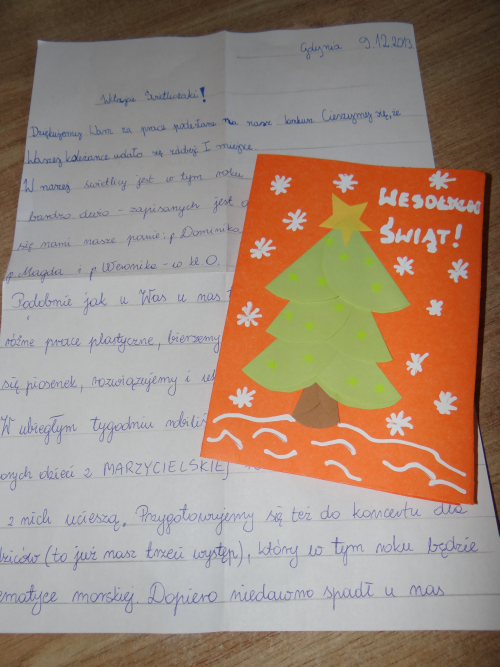 Gdynia 9.12.2013
Świetliczaki!
Dziękujemy Wam za prace podesłane na nasz konkurs. Cieszymy się, że
Waszej koleżance udało się zdobyć I miejsce.
W naszej świetlicy jest w tym roku
bardzo dużo - zapisanych jest
się nami nasze panie: p. Dominika,
p. Magda i p. Weronika - w kl 0.
Podobnie jak u Was u nas
różne prace plastyczne, bierzemy
się piosenek, rozwiązujemy i
W ubiegłym tygodniu robiliś
dzieci z MARZYCIELSKIEJ
z nich ucieszą. Przygotowujemy się też do koncertu dla
dziców (to już nasz trzeci występ), który w tym roku będzie
ematyce morskiej. Dopiero niedawno spadł u nas
WESOŁYCH
ŚWIĄT!